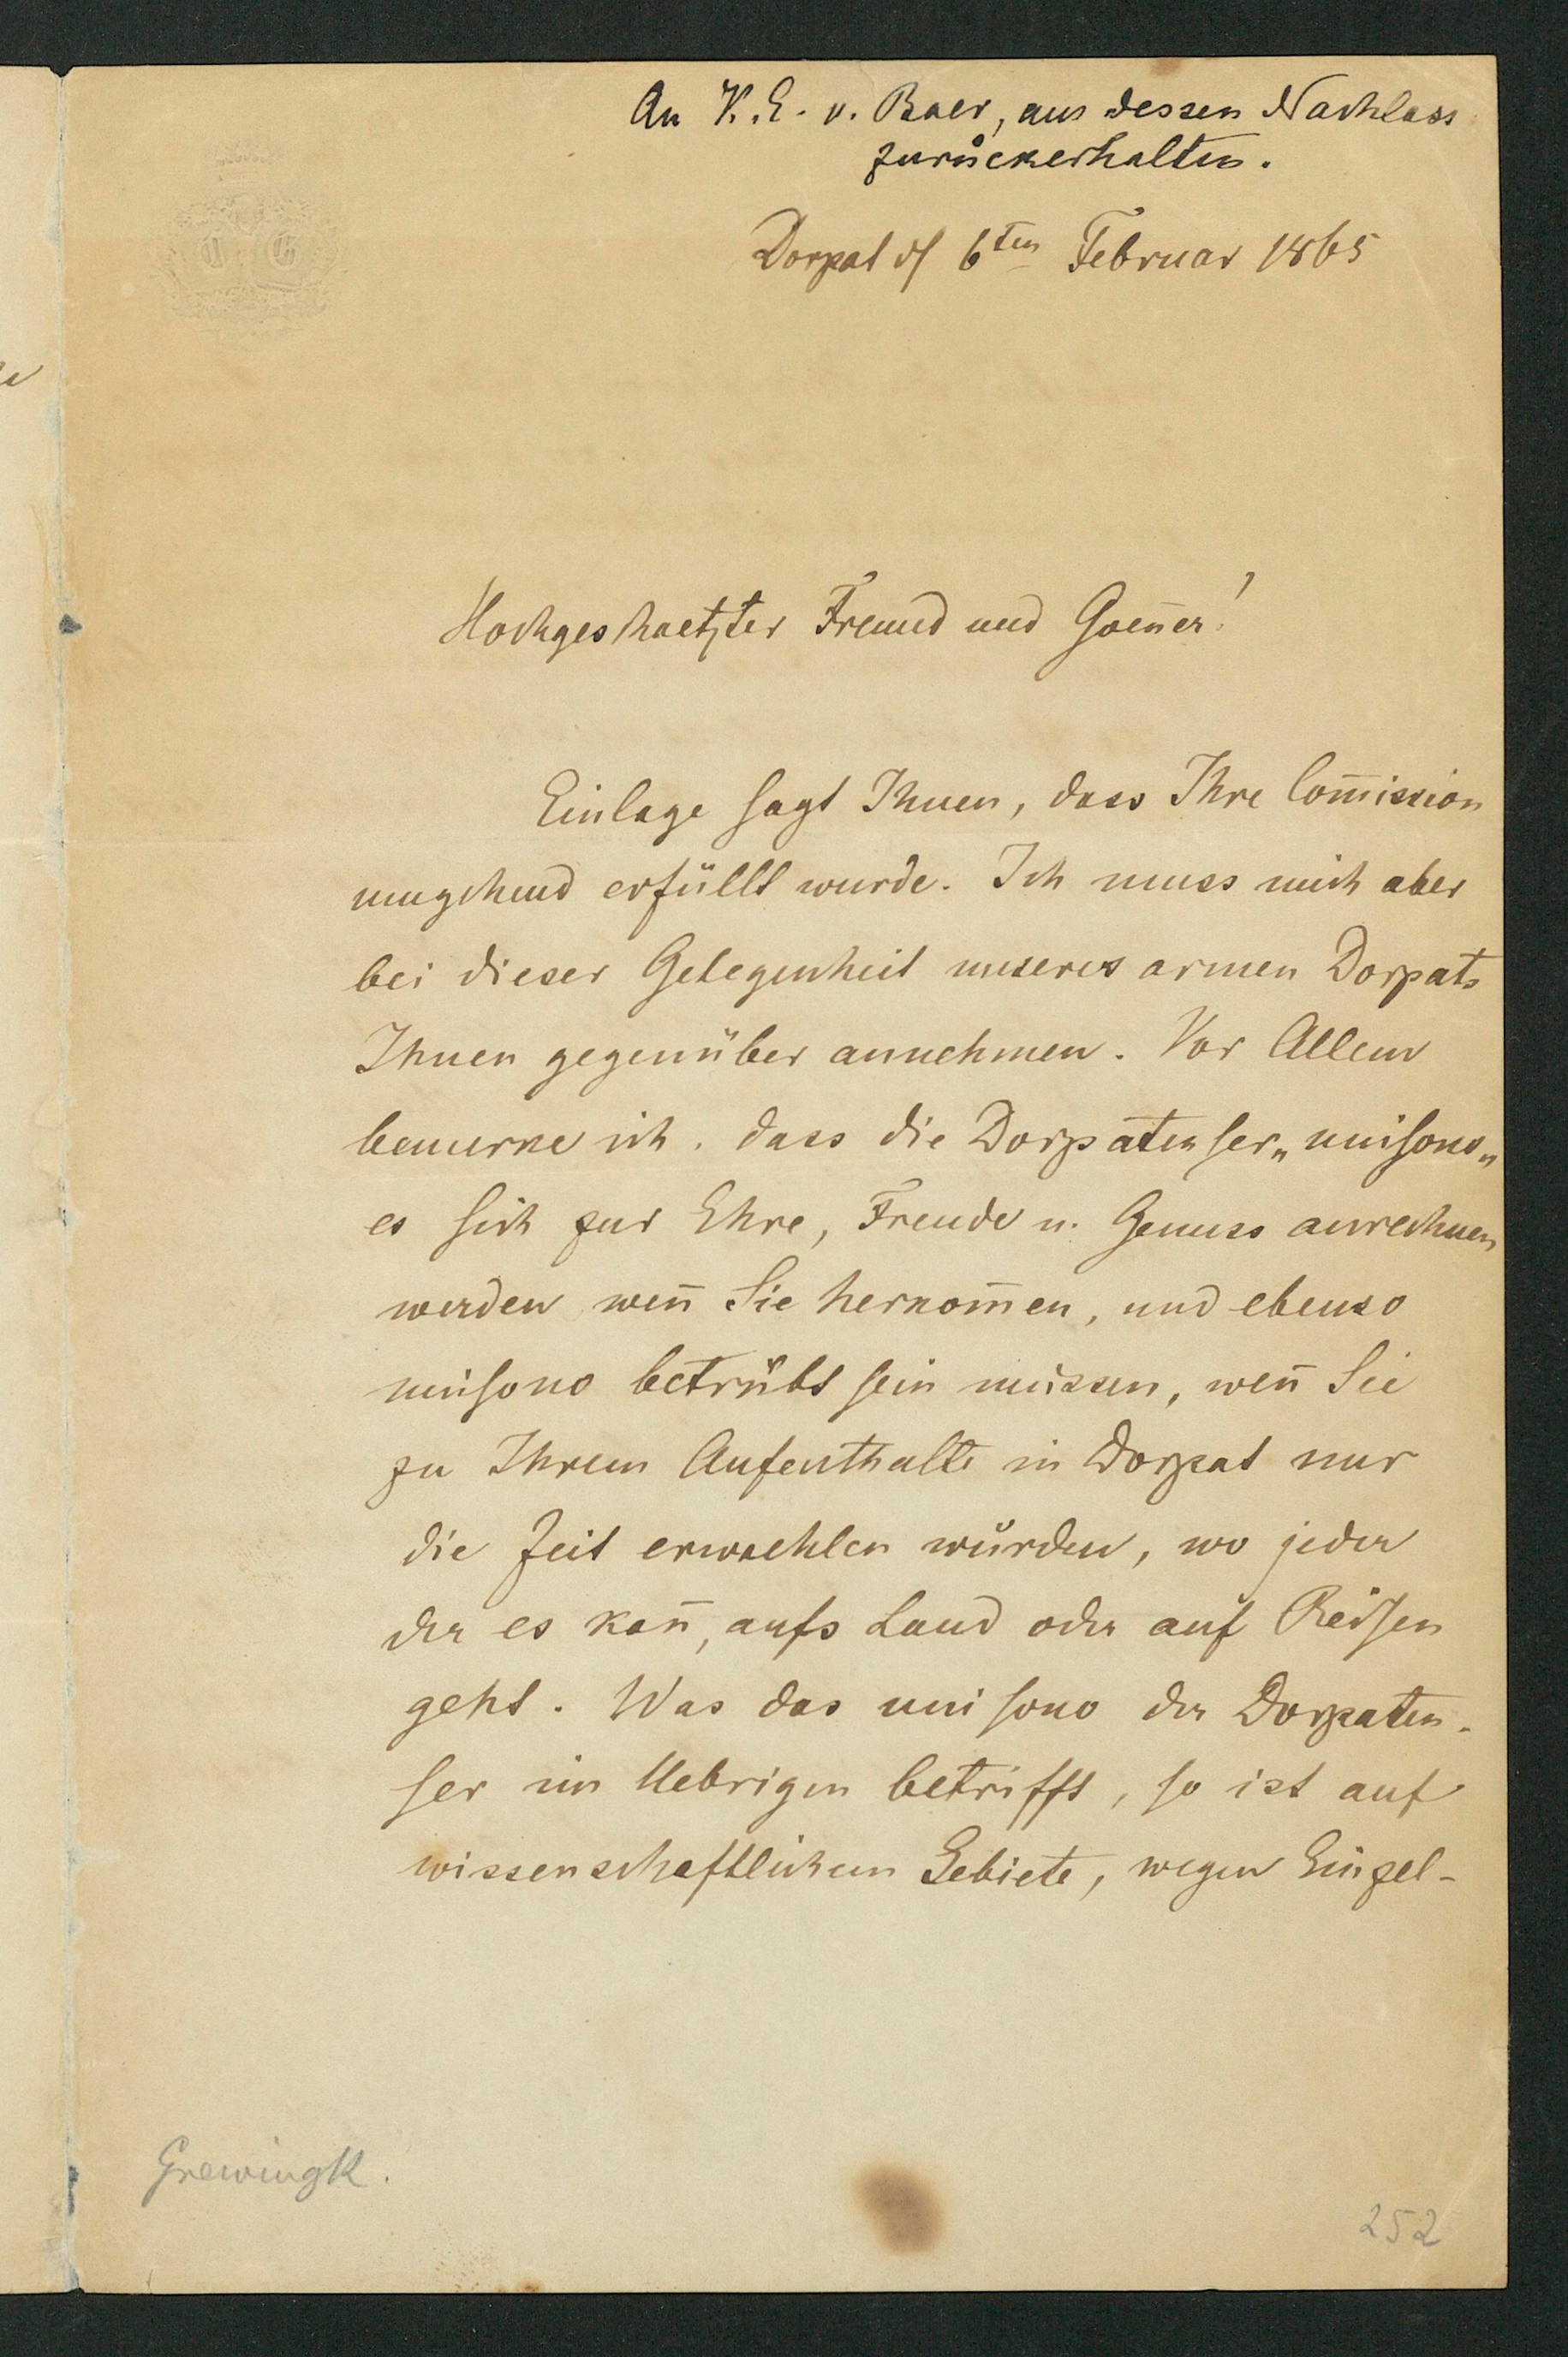 An K. E. v. Baer, aus dessen Nachlass
zurückerhalten.
Dorpat d 6ten Februar 1865
Hochgeschaetzter Freund und Goen̄er!
Einlage sagt Ihnen, dass Ihre Com̄ission
umgehend erfüllt wurde. Ich muss mich aber
bei dieser Gelegenheit unseres armen Dorpats
Ihnen gegenüber annehmen. Vor Allem
bemerke ich, dass die Dorpatenser „unisono„
es sich zur Ehre, Freude u. Genuss anrechnen
werden wen̄ Sie herkom̄en, und ebenso
unisono betrübt sein müssen, wen̄ Sie
zu Ihrem Aufenthalte in Dorpat nur
die Zeit erwaehlen würden, wo jeder
der es kan̄, aufs Land oder auf Reisen
geht. Was das unisono der Dorpaten-
ser im Uebrigen betrifft, so ist auf
wissenschaftlichem Gebiete, wegen Einzel-
Grewingk.
252